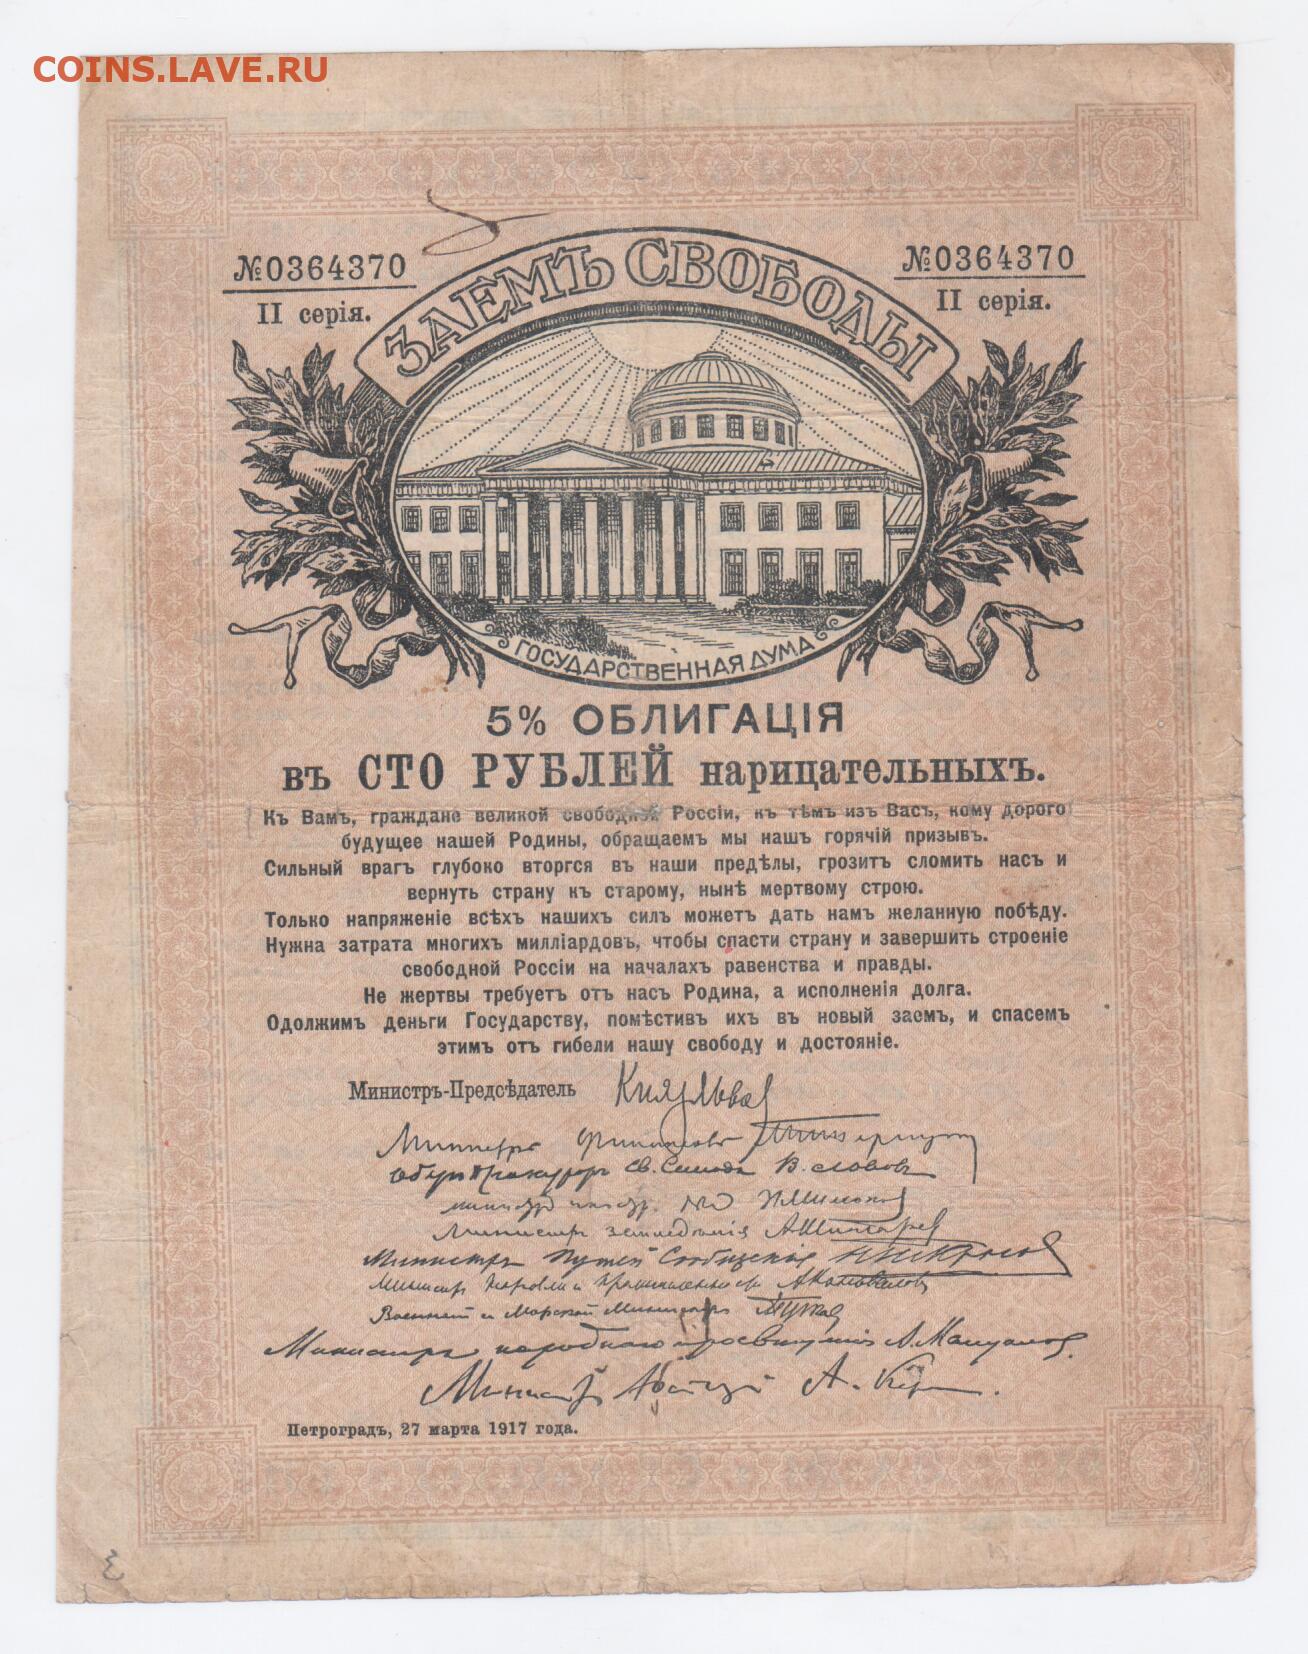 COINS.LAVE.RU
№0364370
II серія.
№0364370
II серія.
ЗАЕМЪ СВОБОДЫ
ГОСУДАРСТВЕННАЯ ДУМА
5% ОБЛИГАЦІЯ
въ СТО РУБЛЕЙ нарицательныхъ.
Къ Вамъ, граждане великой свободной Россіи, къ тѣмъ изъ Васъ, кому дорого
будущее нашей Родины, обращаемъ мы нашъ горячій призывъ.
Сильный врагъ глубоко вторгся въ наши предѣлы, грозитъ сломить насъ и
вернуть страну къ старому, нынѣ мертвому строю.
Только напряженіе всѣхъ нашихъ силъ можетъ дать намъ желанную побѣду.
Нужна затрата многихъ милліардовъ, чтобы спасти страну и завершить строеніе
свободной Россіи на началахъ равенства и правды.
Не жертвы требуетъ отъ насъ Родина, а исполненія долга.
Одолжимъ деньги Государству, помѣстивъ ихъ въ новый заемъ, и спасемъ
этимъ отъ гибели нашу свободу и достояніе.
Министръ-Предсѣдатель Князь Львов
Министръ Финансовъ
Оберъ Прокуроръ Св. Синода В. Львовъ
Министръ земледѣлія А Шингарев
Министръ Путей Сообщенія
Министръ Торговли и Промышленности А Коновалов
Военный и Морской Министръ
Министръ народнаго просвѣщенія А. Мануилов.
Министръ
Петроградъ, 27 марта 1917 года.